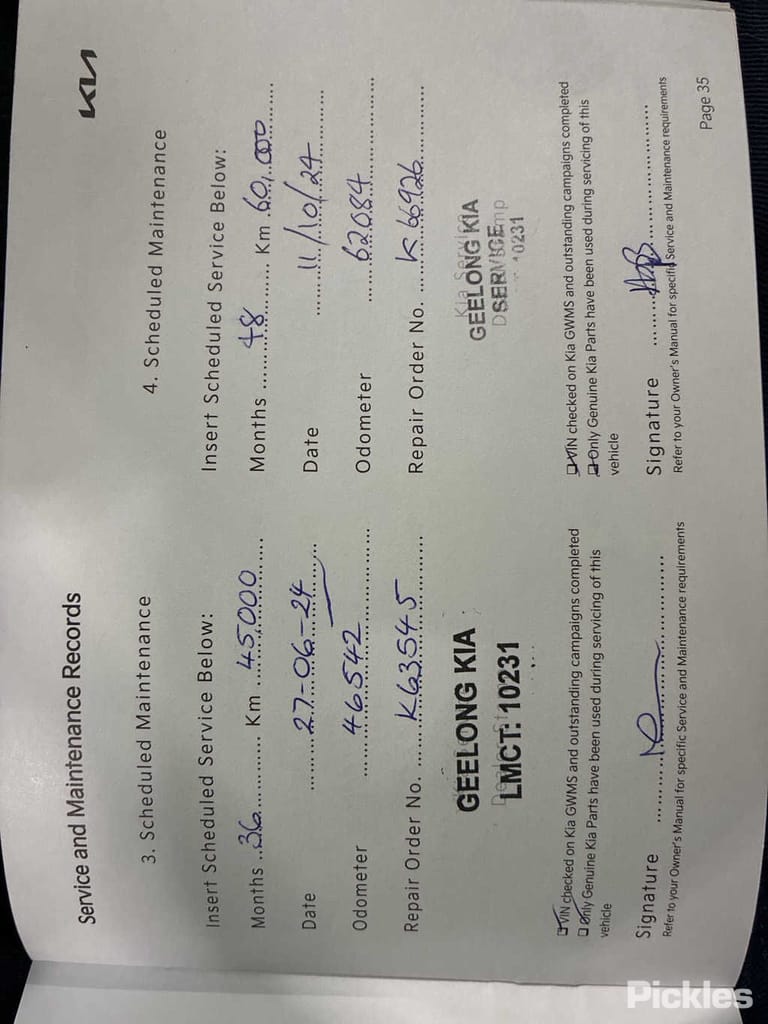 Service and Maintenance Records
KIA
3. Scheduled Maintenance
Insert Scheduled Service Below:
Months ..36............ Km ..45000.........
Date ..........27-06-24..........
Odometer ..........46542..........
Repair Order No. ....K63545..........
GEELONG KIA
LMCT: 10231
VIN checked on Kia GWMS and outstanding campaigns completed
Only Genuine Kia Parts have been used during servicing of this
vehicle
Signature ..............................
Refer to your Owner's Manual for specific Service and Maintenance requirements
4. Scheduled Maintenance
Insert Scheduled Service Below:
Months ......48......... Km .60,000.......
Date ..........11/10/24..........
Odometer ..........62084..........
Repair Order No. ....K66926..........
Kia Service
GEELONG KIA
SERVICE
10231
VIN checked on Kia GWMS and outstanding campaigns completed
Only Genuine Kia Parts have been used during servicing of this
vehicle
Signature ..............................
Refer to your Owner's Manual for specific Service and Maintenance requirements
Page 35
Pickles